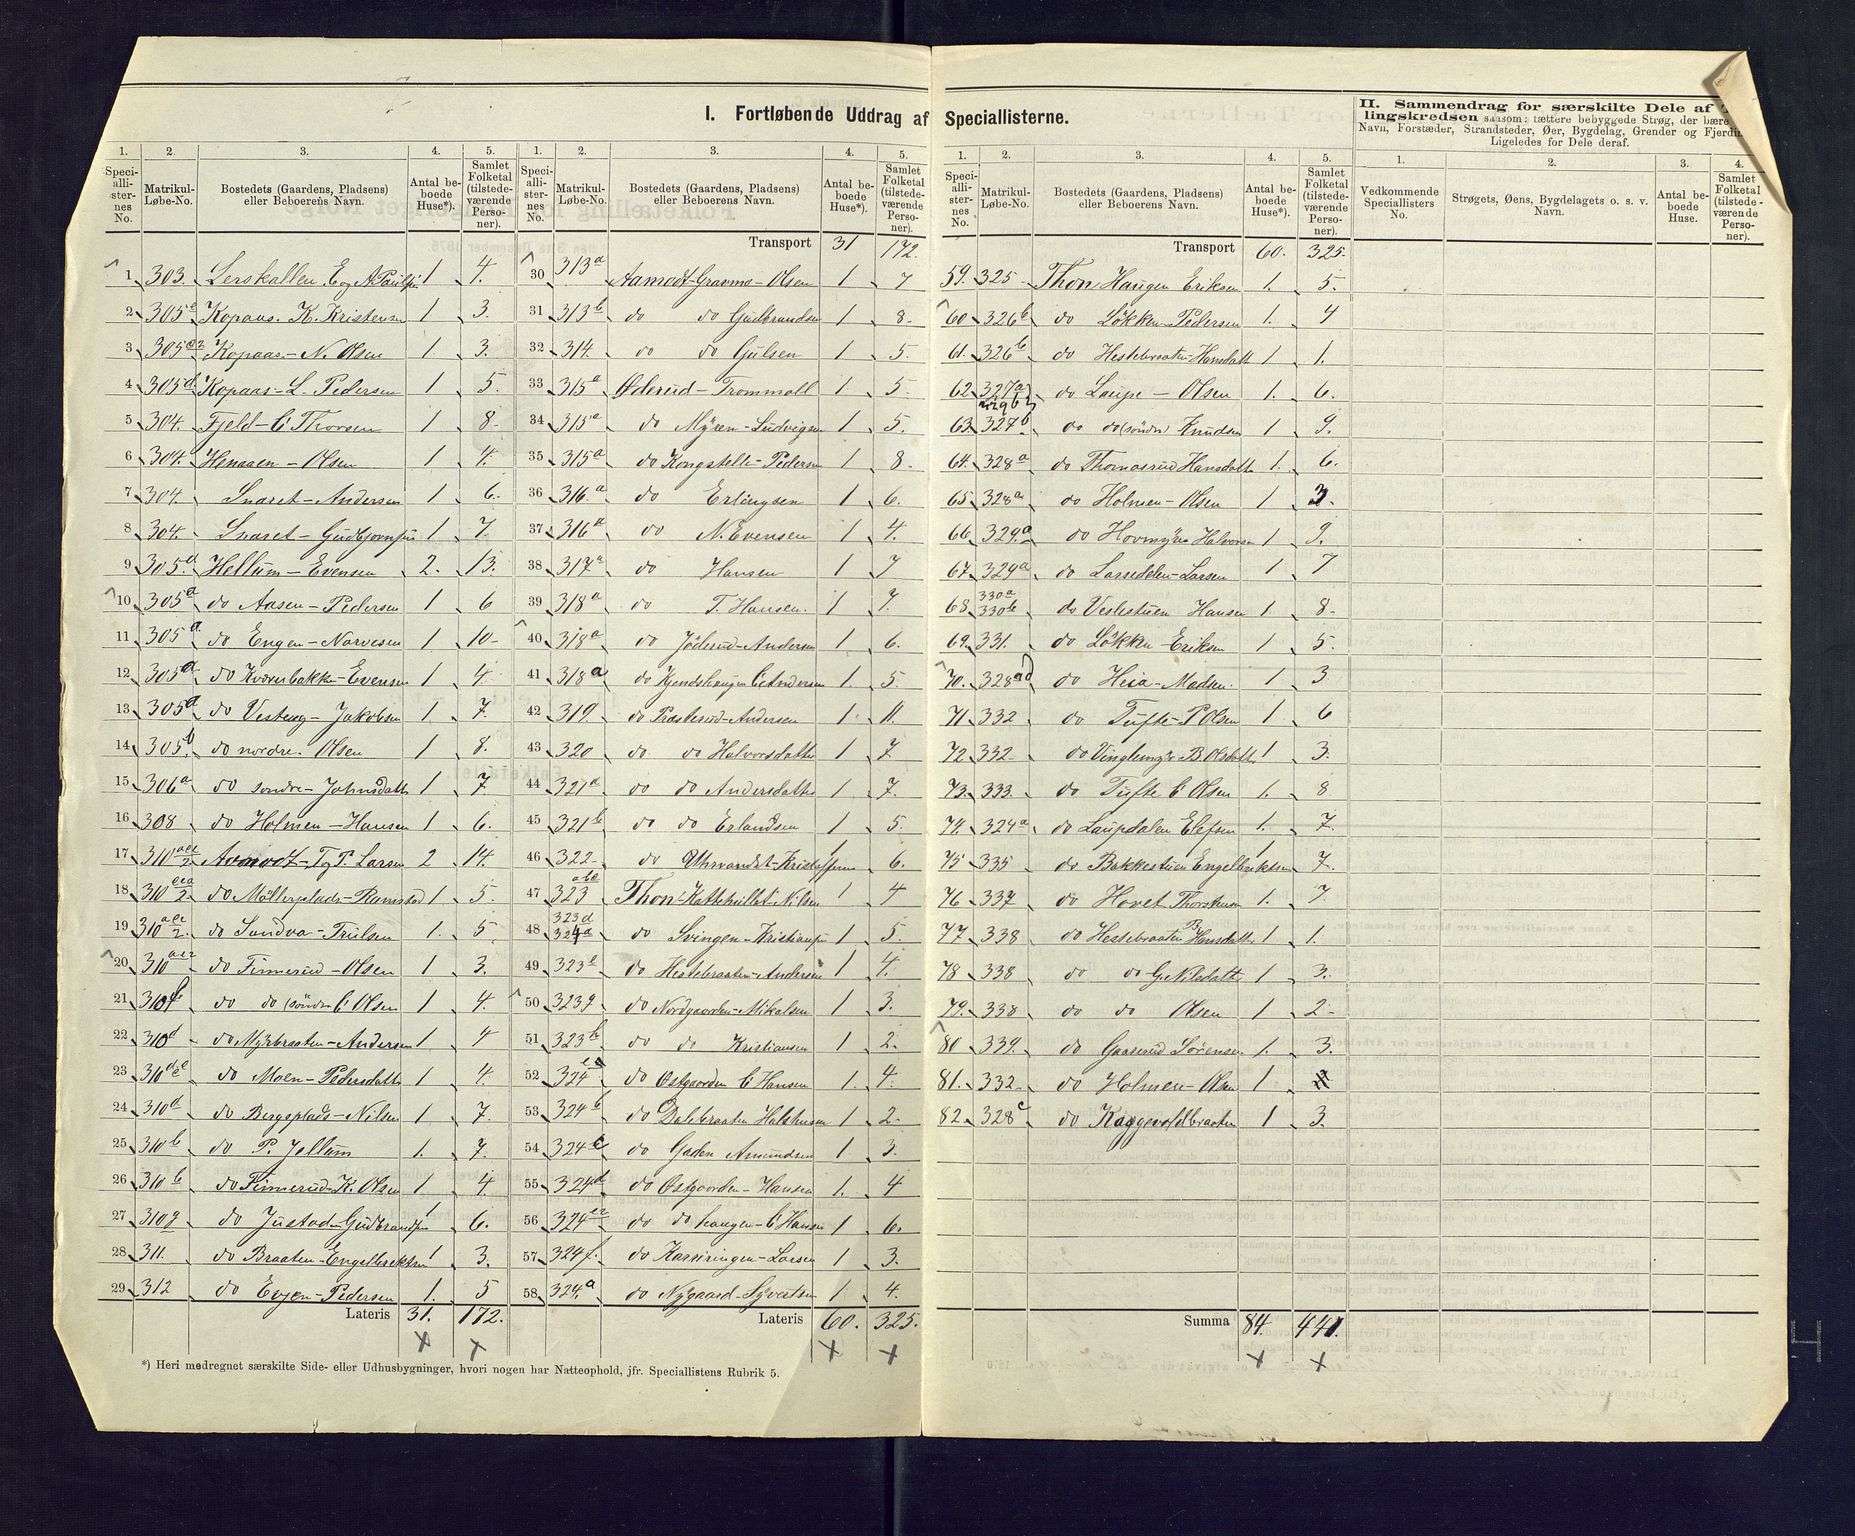 I. Fortløbende Uddrag af Speciallisterne.
II. Sammendrag for særskilte Dele af
lingskredsen saasom: tættere bebyggede Strøg, der bære
Navn, Forstæder, Strandsteder, Øer, Bygdelag, Grender og Fjerdin
Ligeledes for Dele deraf.
1. 2. 3. 4. 5.
Speciallisternes No. Matrikul-Løbe-No. Bostedets (Gaardens, Pladsens) eller Beboerens Navn. Antal beboede Huse*). Samlet Folketal (tilstedeværende Personer).
1 303. Lerskallen E og A Paulsen 1 4.
2 305e Kopaas. K. Kristensen 1 3.
3 305a2 Kopaas- N. Olsen 1. 3.
4 305d Kopaas- L. Pedersen 1 5.
5 304. Fjeld- C Thorsen 1 8
6 304. Henaaen - Olsen 1 4.
7 304. Snaret - Andersen 1 6.
8 304. Snaret - Gudbjørnsen 1 7.
9 305.a Hellum - Evensen 2. 13.
10 305a do Aasen - Pedersen 1 6
11 305a do Engen - Narvesen 1 10-
12 305a do Kværnbakke - Evensen 1 4
13 305a do Vesteng - Jakobsen 1 7.
14 305b do nordre. Olsen 1 8.
15 306a do søndre - Johnsdatter 1 7
16 308 do Holmen - Hansen 1 6.
17 310 Aamodt - T og P. Larsen 2 14.
18 310 do Møllerplads - Ramstad 1 5.
19 310 do Sandva - Trulsen 1. 5
20 310 do Finnerud - Olsen 1 3.
21 310f do do (søndre C Olsen 1 4.
22 310d do Myrbraaten - Andersen 1 4
23 310 do Moen - Pedersdatter 1 4.
24 310d do Bergsplads - Nilsen 1 7.
25 310b do P. Jellum 1. 7.
26 310b do Finnerud - K. Olsen 1 4.
27 310g do Justad - Gudbrandsen 1 6.
28 311. do Braaten - Engelbrektsen 1 3.
29 312 do Evjen - Pedersen 1. 5
Lateris 31. 172.
*) Heri medregnet særskilte Side- eller Udhusbygninger, hvori nogen har Natteophold, jfr. Speciallistens Rubrik 5.
1. 2. 3. 4. 5.
Speciallisternes No. Matrikul-Løbe-No. Bostedets (Gaardens, Pladsens) eller Beboerens Navn. Antal beboede Huse*). Samlet Folketal (tilstedeværende Personer).
Transport 31 172.
30 313a Aamodt-Gravmo - Olsen 1 7
31 313b do do Gudbrandsen 1 8.
32 314. do do Gulsen 1 5.
33 315a Øderud - Trommald 1 5
34 315a do Myren - Ludvigsen 1 5.
35 315a do Kongstelle - Pedersen 1 8.
36 316a do Erlingsen 1 6.
37 316a do N. Evensen 1 4.
38 317a do Hansen 1 7
39 318a do T. Hansen. 1 7.
40 318a do Jøderud - Andersen 1 6.
41 318a do Kjendshaugen C Andersen 1. 5.
42 319. do Præsterud - Andersen 1 11.
43 320 do do Halvorsdatter 1 7.
44 321a do do Andersdatter 1 7.
45 321b do do Erlandsen 1 5.
46 322- do Uhrvandet - Kristoffersen 1 6.
47 323 abc Thon - Kattehullet - Nilsen 1 4
48 323d 324a do Svingen - Kristiansen 1 5.
49 323e do Hestebraaten - Andersen 1 4.
50 323g do Nordgaarden - Mikalsen 1 3.
51 323b do do Kristiansen 1 2.
52 324 do Østgaarden C Hansen 1. 4.
53 324b do Dalebraaten Halstensen 1 2-
54 324c do Gaden Amundsen 1 3.
55 324d do Østgaarden - Hansen 1. 4
56 324 do do haugen - C Hansen 1 6.
57 324f. do Kassiringen - Larsen 1 3.
58 324.a do Nygaard - Syvertsen 1 4.
Lateris 60. 325.
1. 2. 3. 4. 5.
Speciallisternes No. Matrikul-Løbe-No. Bostedets (Gaardens, Pladsens) eller Beboerens Navn. Antal beboede Huse*). Samlet Folketal (tilstedeværende Personer).
Transport 60. 325.
59. 325 Thon, Haugen Eriksen 1. 5.
60 326b do Løkken Pedersen 1. 4
61. 326b do Hestebraaten - Hansdatter 1 1.
62 327a do Laupe - Olsen 1 6.
63 327b do do (søndre) Knudsen 1 9.
64. 328a do Thomasrud Hansdatter 1. 6.
65 328a do Holmen - Olsen 1 3.
66 329.a do Hovmyra Halvorsen 1 9.
67. 329a do Lassedelen - Larsen 1 7
68 330a 330b do Veslestuen Hansen 1. 8.
69. 331. do Løkken - Eriksen 1 5.
70. 328ad do Heia - Madsen. 1 3
71. 332 do Tufte - P Olsen 1 6
72. 332- do Vinglemyr B. Olsdatter 1 3.
73. 333. do Tufte C Olsen 1. 8
74. 324a do Laupdalen Elefsen 1. 7.
75 335 do Bakkestuen Engelbrektsen 1 7.
76 337 do Hovet Thorstensen 1. 7.
77. 338 do Hestebraaten B Hansdatter 1. 1.
78 338 do do G. Nilsdatter 1 3.
79. 338 do do Olsen 1 2-
80 339. do Gaaserud Sørensen 1. 3.
81. 332- do Holmen - Olsen 1
82 328c do Kaggevoldbraaten 1 3.
Summa 84. 441.
1. 2. 3. 4.
Vedkommende Speciallisters No. Strøgets, Øens, Bygdelagets o. s. v. Navn. Antal beboede Huse. Samlet Folketal (tilstedeværende Personer).